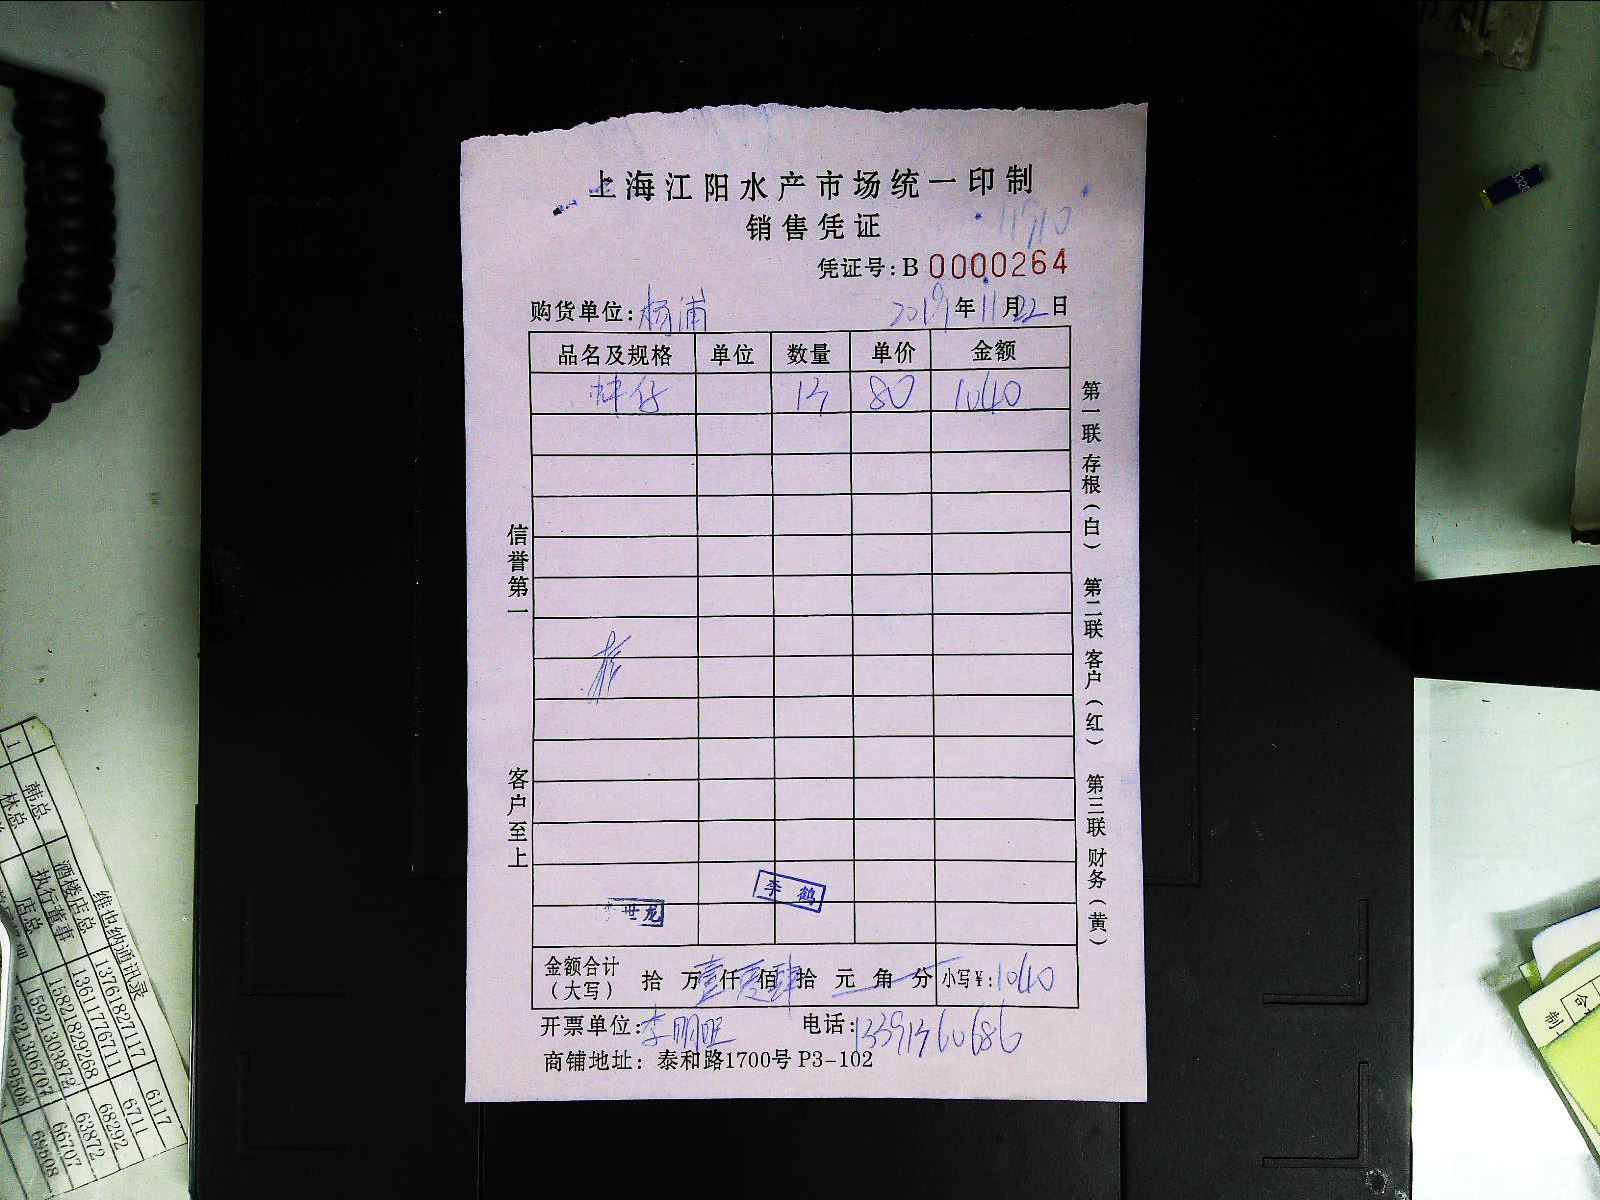 上海江阳水产市场统一印制
销售凭证
11710
凭证号:B 0000264
购货单位:杨浦 2019年11月22日
品名及规格 单位 数量 单价 金额
蚌仔 13 80 1040
信誉第一
客户至上
第一联 存根(白) 第二联 客户(红) 第三联 财务(黄)
李鹤
世龙
金额合计(大写) 拾 万 壹 仟 零 佰 肆 拾 元 角 分 小写¥:1040
开票单位:李明旺 电话:13391360686
商铺地址: 泰和路1700号 P3-102
维也纳通讯录
韩总 酒楼店总 13761827117 6117
林总 执行董事 13611776711 6711
店总 15821829268 68292
15921303872 63872
15921306707 66707